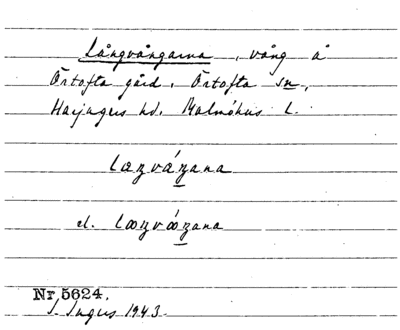 Långvångarna, vång å
Örtofta gård, Örtofta sn,
Harjagers hd. Malmöhus L.
el.
Nr 5624.
J. Ingers 1943.